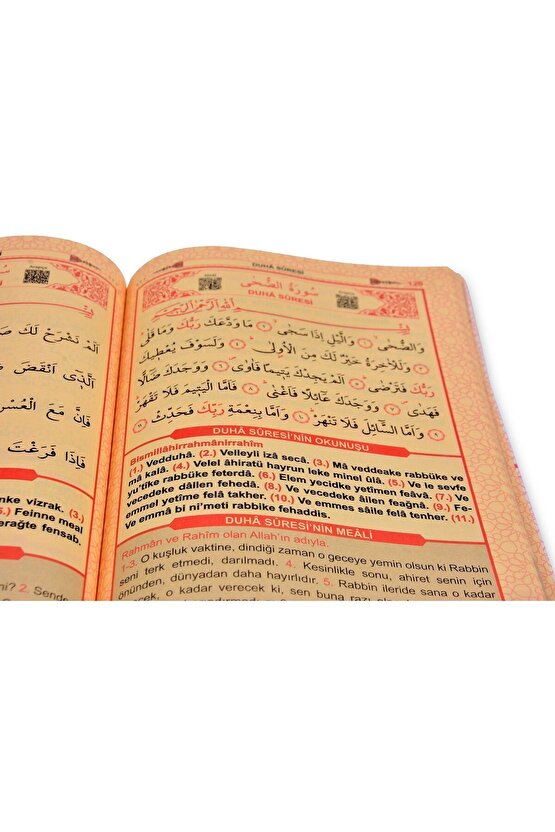 DUHÂ SÛRESİ
128
سُورَةُ الضُّحٰى
DUHÂ SÛRESİ
وَالضُّحٰىۙ ﴿١﴾ وَالَّيْلِ اِذَا سَجٰىۙ ﴿٢﴾ مَا وَدَّعَكَ رَبُّكَ وَمَا قَلٰىۜ
﴿٣﴾ وَلَلْاٰخِرَةُ خَيْرٌ لَكَ مِنَ الْاُو۫لٰىۜ ﴿٤﴾ وَلَسَوْفَ يُعْط۪يكَ
رَبُّكَ فَتَرْضٰىۜ ﴿٥﴾ اَلَمْ يَجِدْكَ يَت۪يمًا فَاٰوٰىۖ ﴿٦﴾ وَوَجَدَكَ ضَٓالًّا
فَهَدٰىۖ ﴿٧﴾ وَوَجَدَكَ عَٓائِلًا فَاَغْنٰىۜ ﴿٨﴾ فَاَمَّا الْيَت۪يمَ فَلَا تَقْهَرْۜ
﴿٩﴾ وَاَمَّا السَّٓائِلَ فَلَا تَنْهَرْۜ ﴿١٠﴾ وَاَمَّا بِنِعْمَةِ رَبِّكَ فَحَدِّثْ ﴿١١﴾
DUHÂ SÛRESİ'NİN OKUNUŞU
Bismillâhirrahmânirrahîm
(1.) Vedduhâ. (2.) Velleyli izâ secâ. (3.) Mâ veddeake rabbüke ve
mâ kalâ. (4.) Velel âhiratü hayrun leke minel ûlâ. (5.) Ve le sevfe
yu'tîke rabbüke feterdâ. (6.) Elem yecidke yetîmen feâvâ. (7.) Ve
vecedeke dâllen fehedâ. (8.) Ve vecedeke âilen feağnâ. (9.) Fe-
emmel yetîme felâ takher. (10.) Ve emmes sâile felâ tenher. (11.)
Ve emmâ bi ni'meti rabbike fehaddis.
DUHÂ SÛRESİ'NİN MEÂLİ
Rahmân ve Rahîm olan Allah'ın adıyla.
1-3. O kuşluk vaktine, dindiği zaman o geceye yemin olsun ki Rabbin
seni terk etmedi, darılmadı. 4. Kesinlikle sonu, ahiret senin için
önünden, dünyadan daha hayırlıdır. 5. Rabbin ileride sana o kadar
o kadar verecek ki, sen buna razı
اَلَمْ نَشْرَحْ لَكَ
اَلَّذ۪ٓي اَنْقَضَ
فَاِنَّ مَعَ الْعُسْرِ
فَاِذَا فَرَغْتَ
vizrak. (3.)
Feinne meal
fensab.
2. Sende